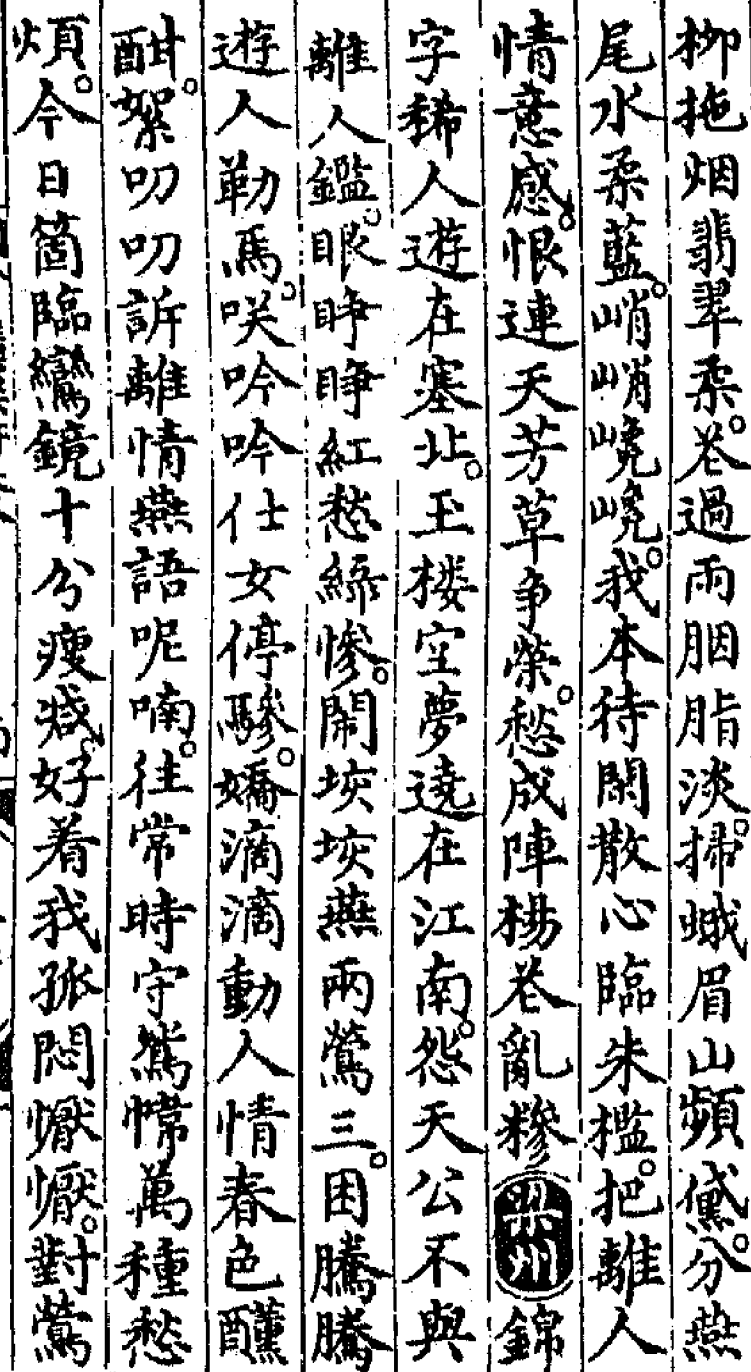 柳拖烟翡翠柔。巷過雨胭脂淡。掃蛾眉山頻黛。分燕
尾水柔藍。峭峭嶢嶢。我本待閑散心臨朱檻。把離人
情意感。恨連天芳草争榮。愁成陣楊巷亂糝 梁州 錦
字稀人遊在塞北。玉楼空夢遶在江南。怨天公不與
離人鑑。眼睁睁紅愁綠慘。閙垓垓燕兩鶯三。困騰騰
遊人勒馬。咲吟吟仕女停驂。嬌滴滴動人情春色醺
酣。絮叨叨訴離情燕語呢喃。往常時守鴛幃萬種愁
煩。今日箇臨鸞鏡十分瘦减。好着我孤悶懨懨。對鶯